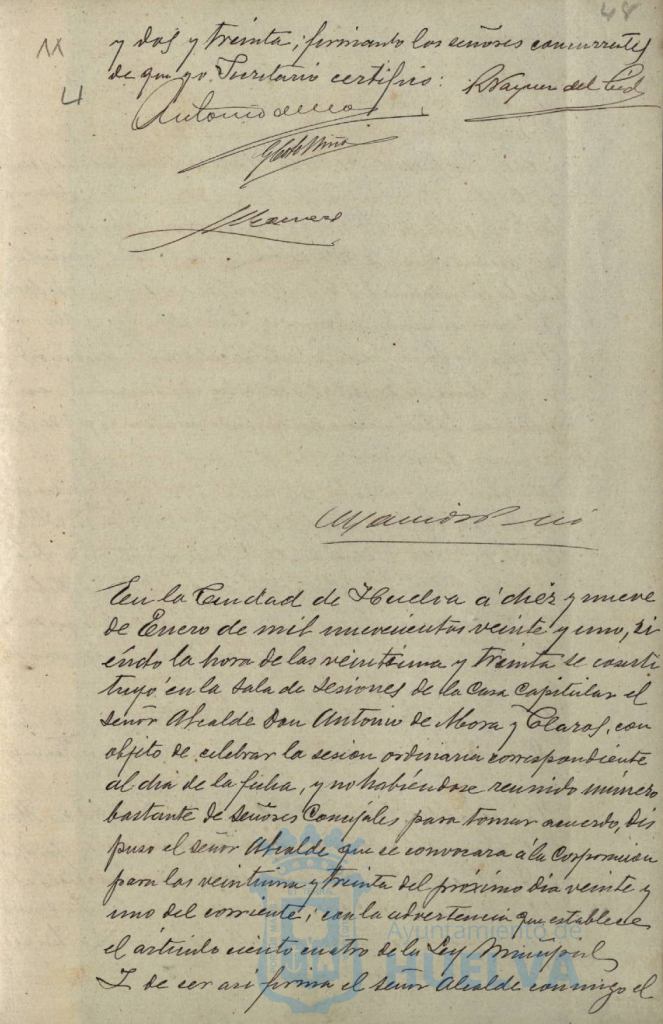 48
y dos y treinta; firmando los señores concurrentes
4
de que yo Secretario certifico:
Antonio de Mora
En la Ciudad de Huelva á diéz y nueve
de Enero de mil novecientos veinte y uno, si
éndo la hora de las veintiuna y treinta se consti
tuyó en la sala de sesiones de la Casa Capitular el
Señor Alcalde Don Antonio de Mora y Claros, con
objeto de celebrar la sesion ordinaria correspondiente
al dia de la fecha, y no habiéndose reunido número
bastante de señores Concejales para tomar acuerdo, dis
puso el señor Alcalde que se convocara á la Corporacion
para las veintiuna y treinta del próximo dia veinte y
uno del corriente; con la advertencia que establece
el artículo ciento cuatro de la Ley Municipal
Y de ser asi firma el señor Alcalde conmigo el
Ayuntamiento de
HUELVA